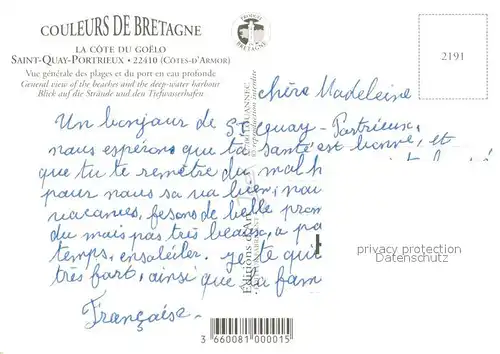 COULEURS DE BRETAGNE
LA CÔTE DU GOËLO
SAINT-QUAY-PORTRIEUX • 22410 (CÔTES-D'ARMOR)
Vue générale des plages et du port en eau profonde
General view of the beaches and the deep-water harbour
Blick auf die Strände und den Tiefwasserhafen
PRODUIT
BRETAGNE
2191
chère Madeleine
Un bonjour de St Quay-Portrieux,
nous espérons que ta santé est bonne, et
que tu te remétre du mal h
pour nous sa va bien, nou
vacances, fesons de belle prom
du mais pas très beau, a pa
temps, ensoleiller. je te qui
très fort, ainsi que ta fam
Française.
Editions d'Art
reproduction interdite
privacy protection
Datenschutz
3 660081 000015